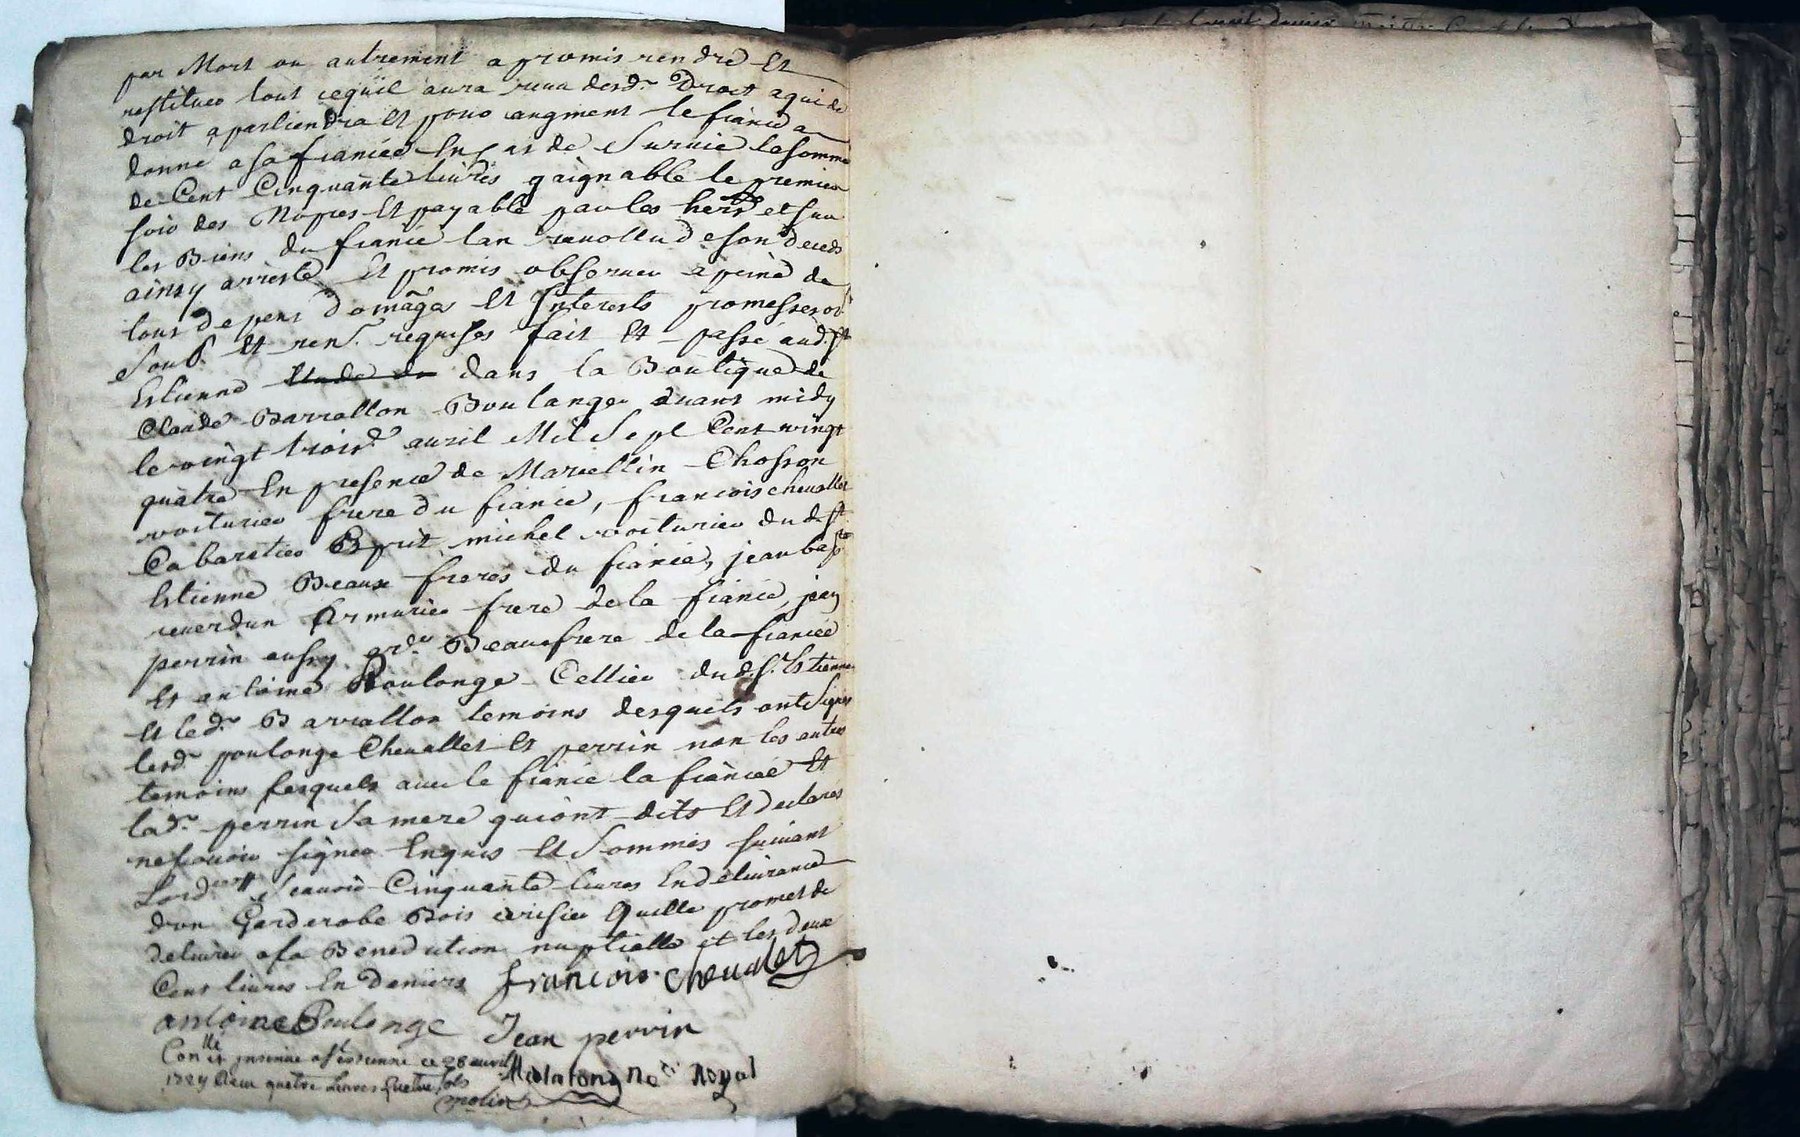 par Mort ou autrement a promis rendre Et
restituer tout cequil aura receu desd. Droit a qui de
droit apartiendra Et pour augment le fiance a
donné a sa fiancée En Cas de Survie la somme
de Cent Cinquante livres gaignable le premier
soir des Nopces Et payable par les hers et sur
les Biens du fiancé lan revollu de son deceds
ainsy arresté Et promis observer a peine de
tous depens domages Et Interests promesses
Soub. Et ren. requises fait Et passé aud. St
Estienne dans la Boutique de
Claude Barrallon Boulanger avant midy
le vingt trois.e avril Mil Sept Cent vingt
quatre En presence de Marcellin Chosson
voiturier frere du fiancé, francois chevallet
Cabaretier Esprit michel voiturier dud. St
Estienne Beaux freres du fiancé, jean bap.te
reverdun Armurier frere de la fiancé, jean
perrin aussy Beaufrere de la fiancée
Et antoine Poulonge Cellier dud. St. Estienne
Et led. Barrallon temoins desquels ont signé
lesd. poulonge Chevallet Et perrin non les autres
temoins lesquels avec le fiancé la fiancée Et
lad. perrin Sa mere quiont dits Et declarés
ne scavoir signer Enquis Et Sommés suivant
Lord.ce Scavoir Cinquante livres En delivrance
dun Garderobe Bois cerisier quelle promet de
delivrer a la Benediction nuptialle et les deux
Cent livres En deniers francois chevalet
antoine Poulonge Jean perrin
Con.llé et insinué a St estienne ce 28 avril
1724 Receu quatre Livres quatre sols Royal
molin